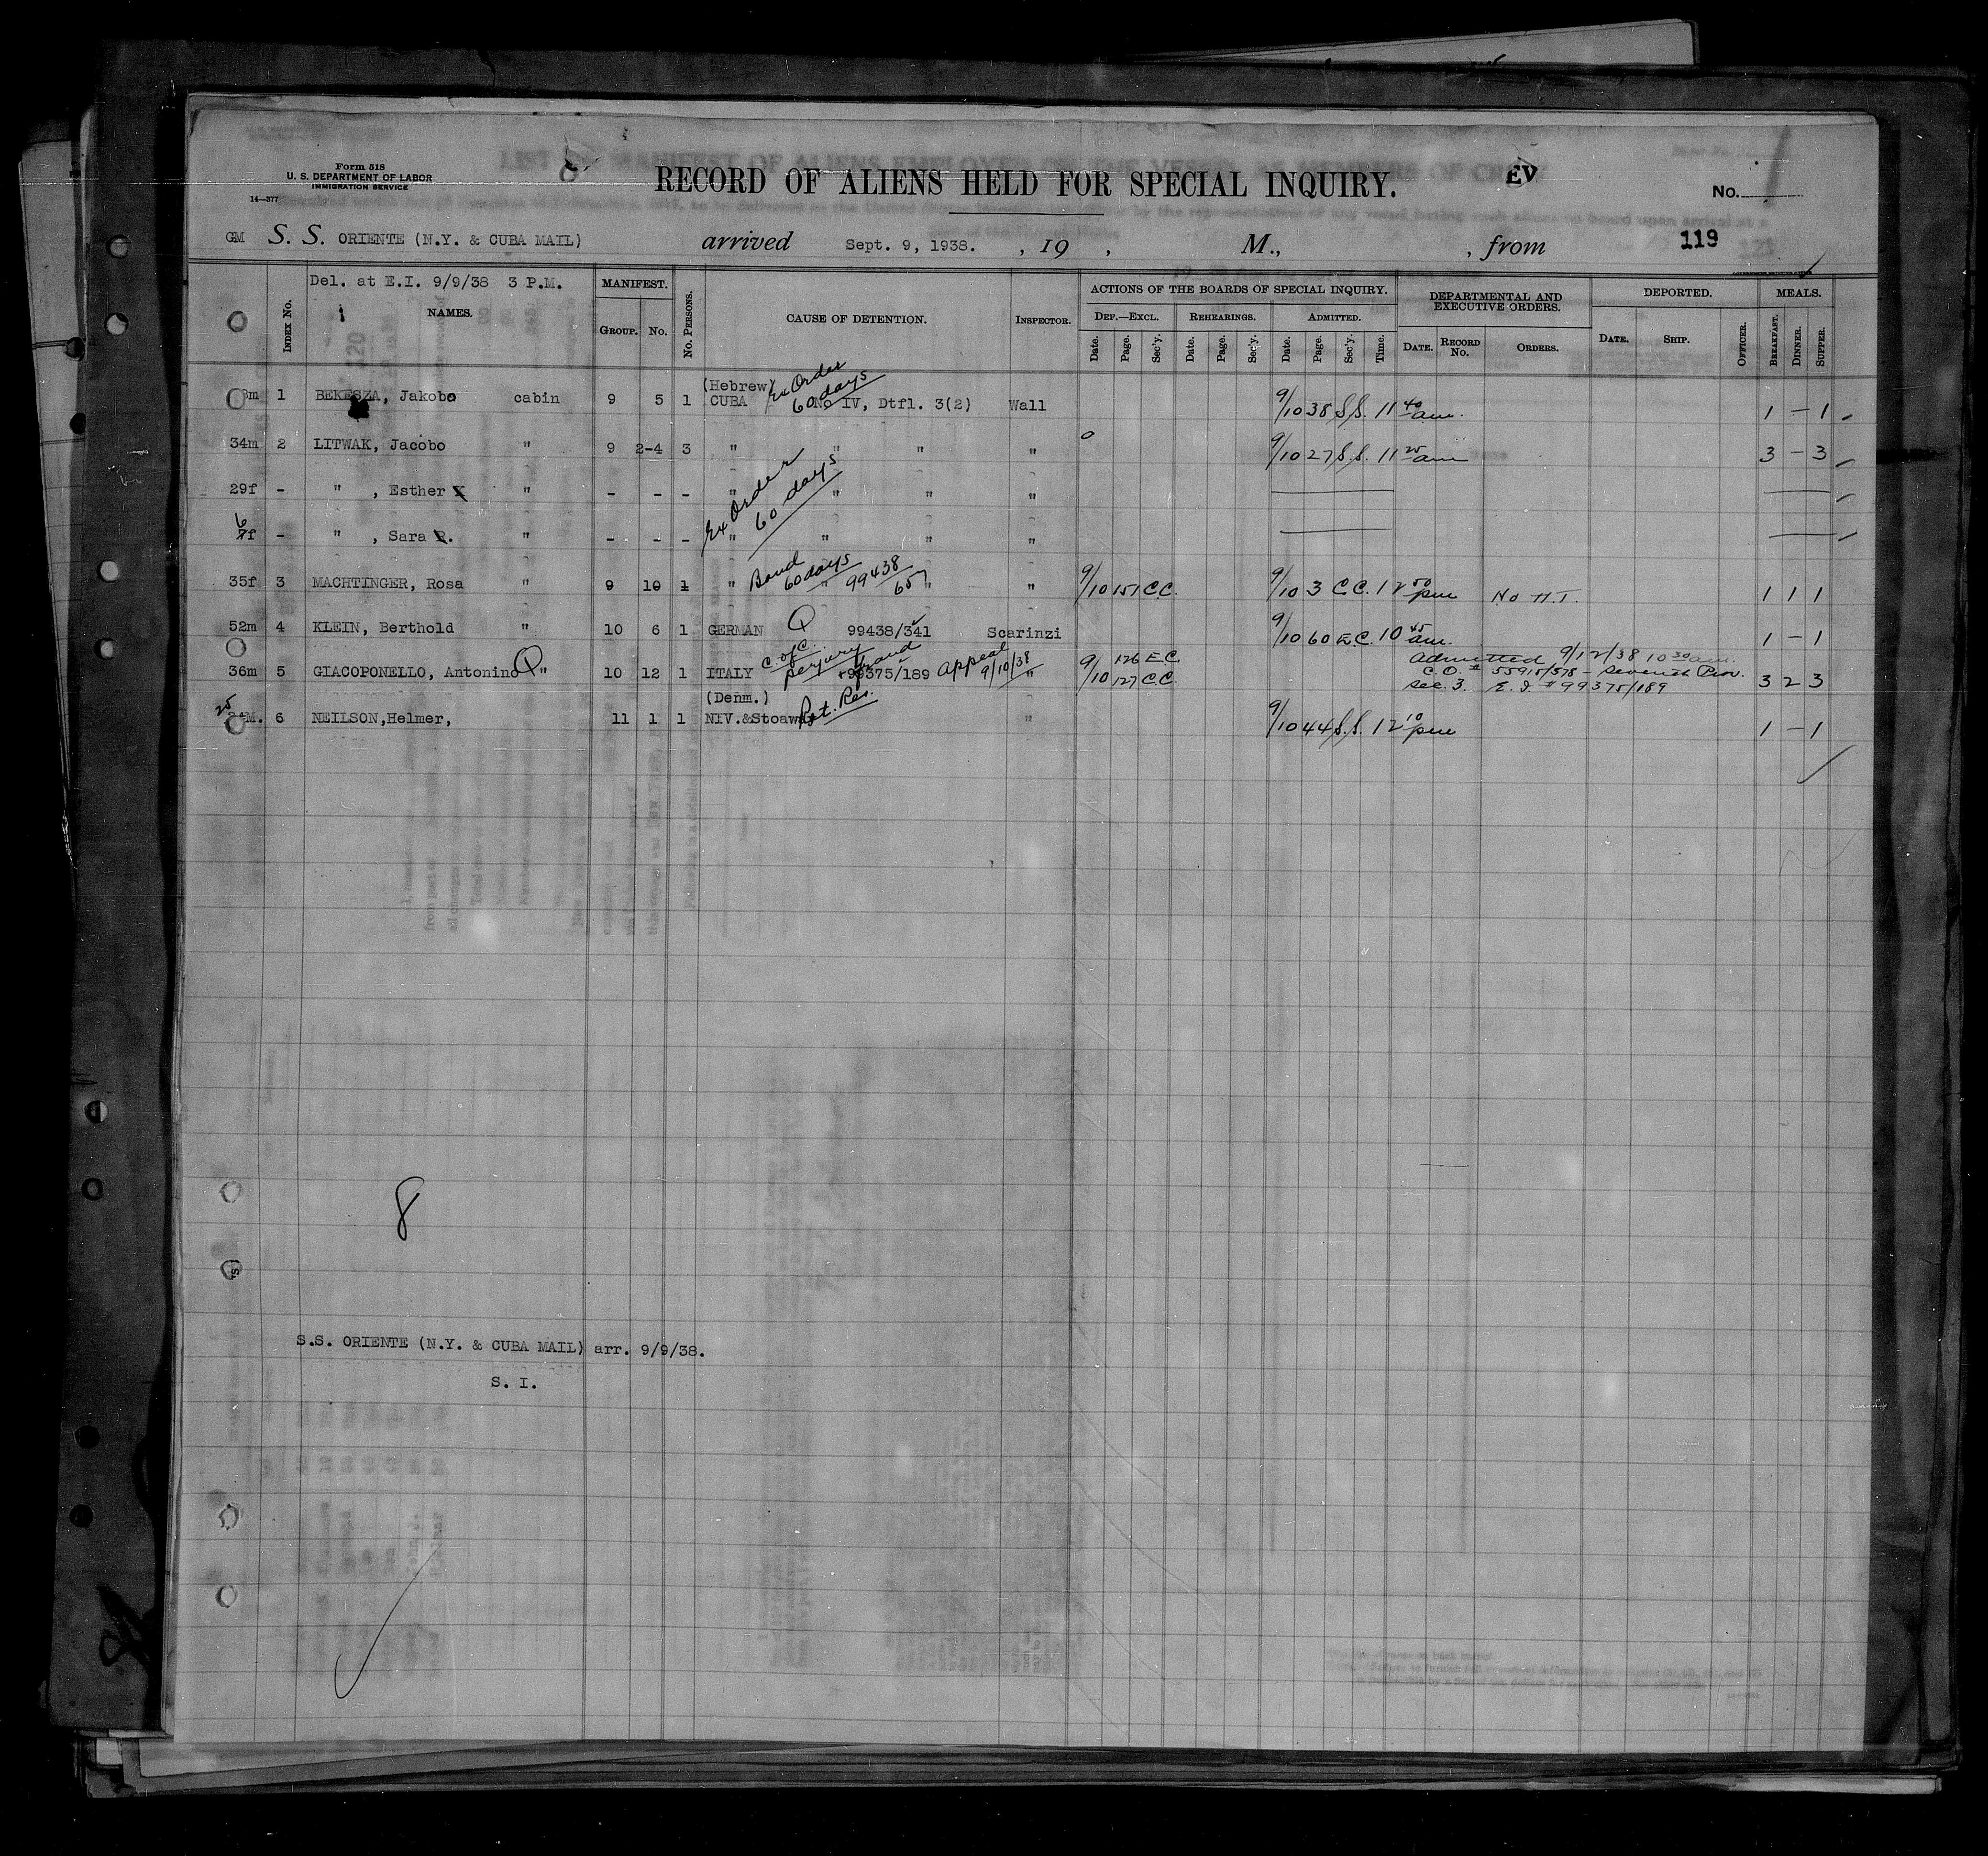 Form 518
U. S. DEPARTMENT OF LABOR
IMMIGRATION SERVICE
14—377
8
RECORD OF ALIENS HELD FOR SPECIAL INQUIRY.
EV
No.
GM S. S. ORIENTE (N.Y. & CUBA MAIL) arrived Sept. 9, 1938. , 19 , M., , from 119
Del. at E.I. 9/9/38 3 P.M.
INDEX No. NAMES. MANIFEST. GROUP. No. No. PERSONS. CAUSE OF DETENTION. INSPECTOR. ACTIONS OF THE BOARDS OF SPECIAL INQUIRY. DEPARTMENTAL AND EXECUTIVE ORDERS. DEPORTED. MEALS.
DEF.—EXCL. REHEARINGS. ADMITTED.
Date. Page. Sec'y. Date. Page. Sec'y. Date. Page. Sec'y. Time. DATE. RECORD No. ORDERS. DATE. SHIP. OFFICER. BREAKFAST. DINNER. SUPPER.
(Hebrew) Ex Order 60 days
1 BEKESZA, Jakobo cabin 9 5 1 CUBA No IV, Dtfl. 3(2) Wall 9/10 38 S.S. 11 40 am. 1 – 1
34m 2 LITWAK, Jacobo " 9 2-4 3 " " " " 9/10 27 S.S. 11 25 am 3 – 3
29f - " , Esther " - - - " " " "
Ex Order 60 days
6 7f - " , Sara R. " - - - " " " "
35f 3 MACHTINGER, Rosa " 9 10 1 " Bond 60 days " 99438/657 " " 9/10 157 C.C. 9/10 3 C.C. 12 50 pm No H.T. 1 1 1
52m 4 KLEIN, Berthold " 10 6 1 GERMAN Q 99438/341 Scarinzi 9/10 60 E.C. 10 45 am. 1 – 1
C. of C. perjury Bond
36m 5 GIACOPONELLO, Antonino Q " 10 12 1 ITALY 99375/189 Appeal 9/10/38 " 9/10 126 E.C. 127 C.C. Admitted 9/12/38 10 30 am. 3 2 3
C.O. # 55915/578 – Seventh Prov.
Sec. 3. E.I. # 99375/189
(Denm.)
25 24M. 6 NEILSON,Helmer, 11 1 1 NIV.&Stoaway Ret. Res. " 9/10 44 S.S. 12 10 pm 1 – 1
8
S.S. ORIENTE (N.Y. & CUBA MAIL) arr. 9/9/38.
S. I.